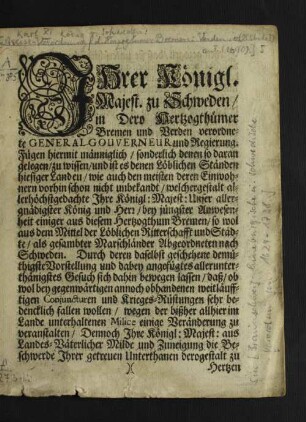 IHrer Königl.
Majest. zu Schweden/
in Dero Hertzogthümer
Bremen und Verden verordne-
te GENERAL GOUVERNEUR und Regierung.
Fügen hiermit männiglich / sonderlich denen so daran
gelegen/ zu wissen/ und ist es denen Löblichen Ständen
hiesiger Landen/ wie auch den meisten deren Einwoh-
nern vorhin schon nicht unbekandt/ welchergestalt al-
lerhöchstgedachte Ihre Königl: Majest: Unser aller-
gnädigster König und Herr/ bey jüngster Anwesen-
heit einiger aus diesem Hertzogthum Bremen/ so wol
aus dem Mittel der Löblichen Ritterschafft und Städ-
te/ als gesambter Marschländer Abgeordneten nach
Schweden. Durch deren daselbst geschehene demü-
thigste Vorstellung und dabey angefügtes allerunter-
thänigstes Gesuch sich dahin bewegen lassen/ daß/ ob
wol bey gegenwärtigen annoch obhandenen weitläuff-
tigen Conjuncturen und Krieges-Rüstungen sehr be-
dencklich fallen wollen/ wegen der bißher allhier im
Lande unterhaltenen Milice einige Veränderung zu
veranstalten/ Dennoch Ihre Königl: Majest: aus
Landes-Väterlicher Milde und Zuneigung die Be-
schwerde Ihrer getreuen Unterthanen derogestalt zu
)( Hertzen